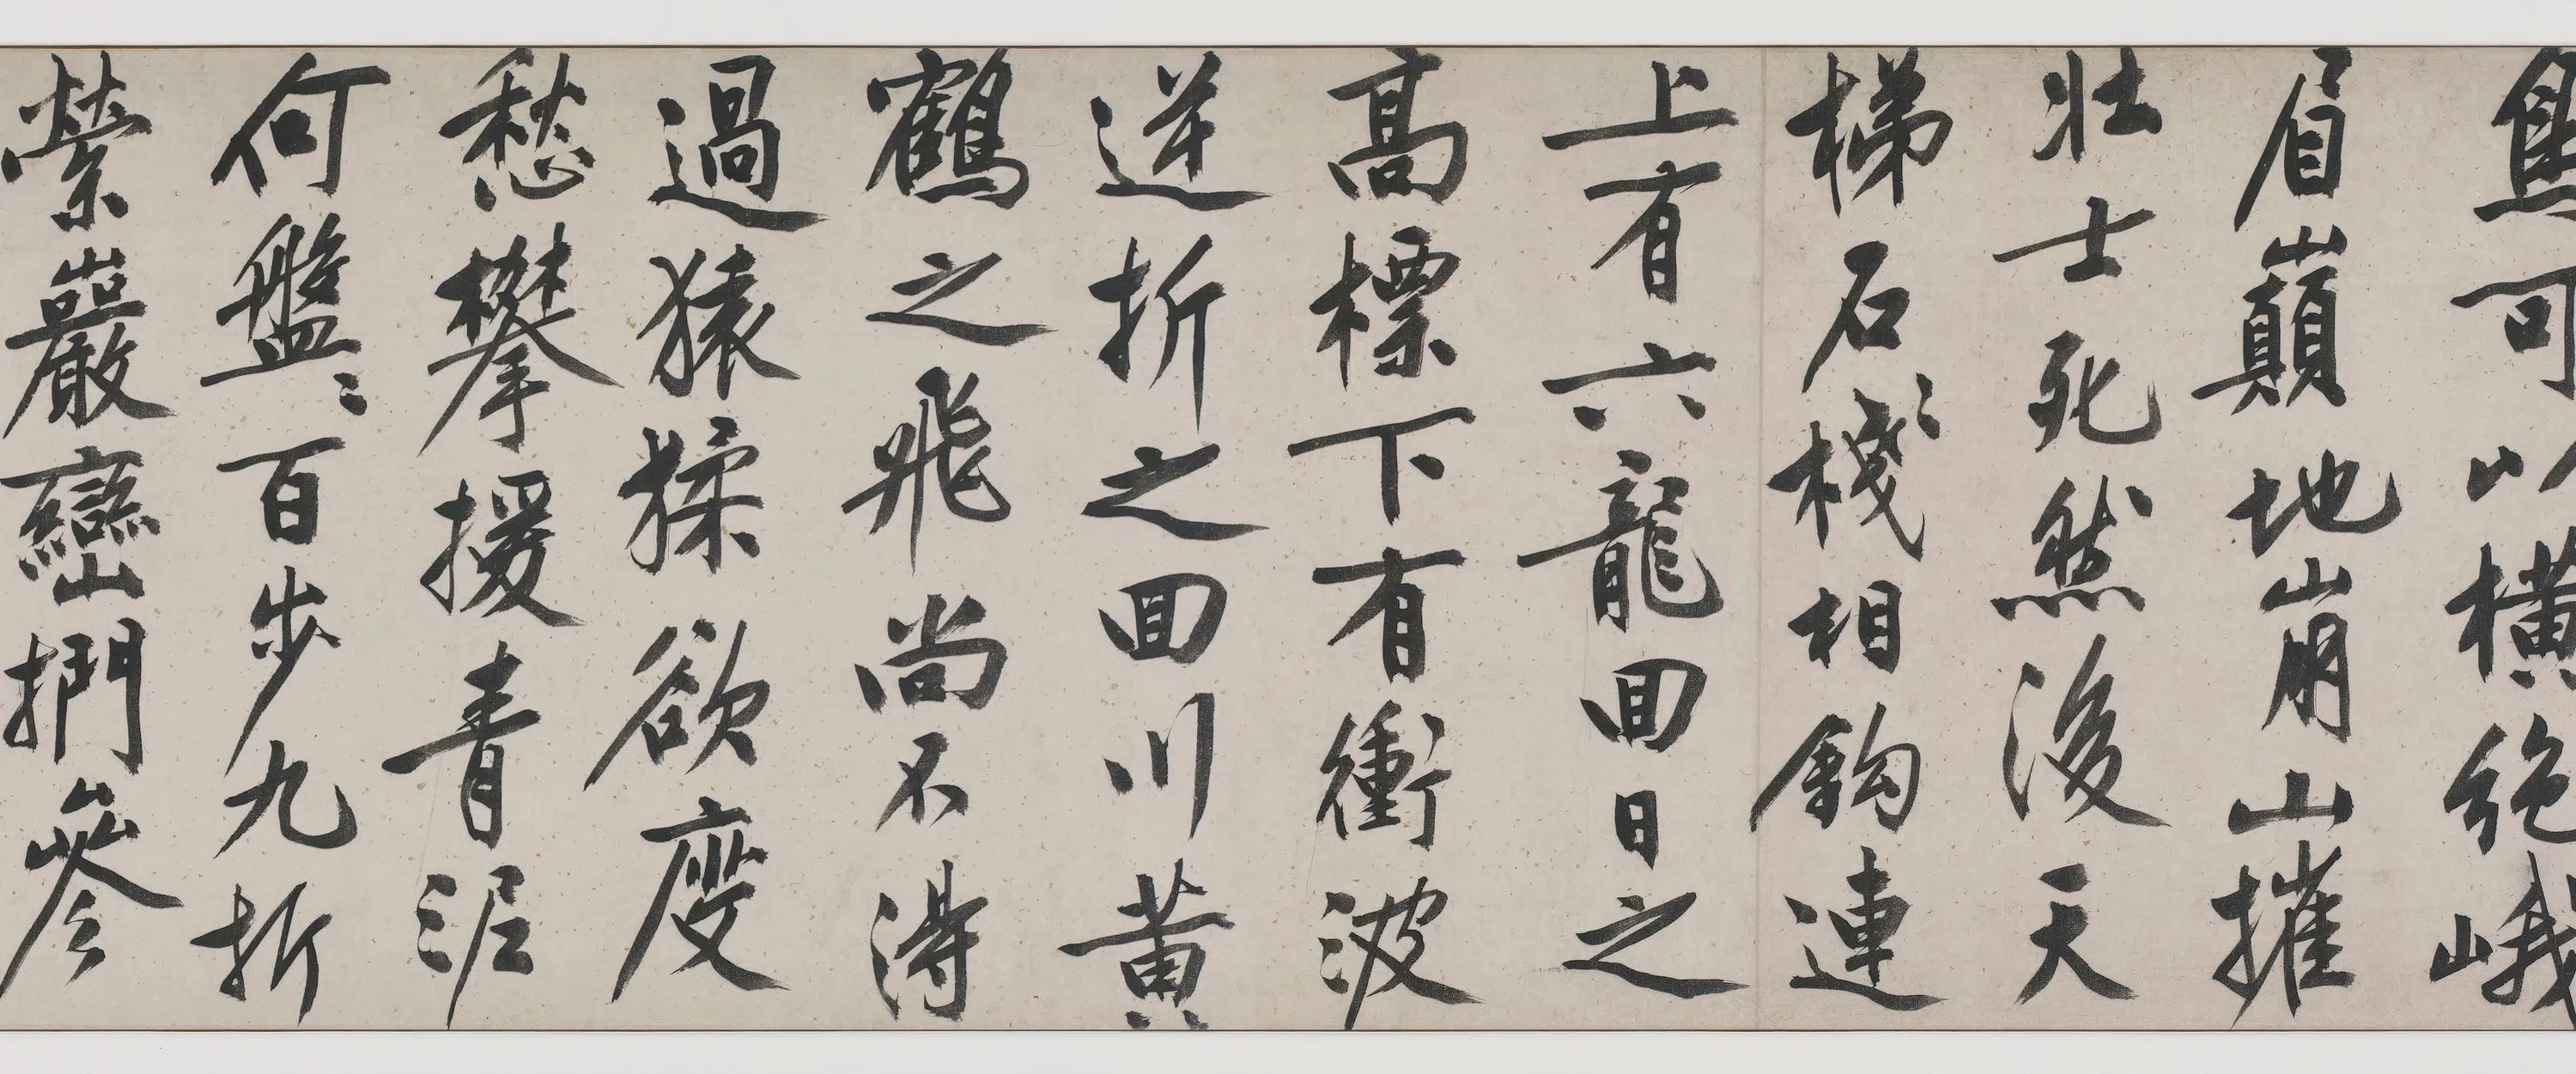 鳥可以橫絕峨
眉巔地崩山摧
壯士死然後天
梯石棧相鉤連
上有六龍回日之
高標下有衝波
逆折之回川黃
鶴之飛尚不得
過猿猱欲度
愁攀援青泥
何盤〻百步九折
縈巖巒捫參